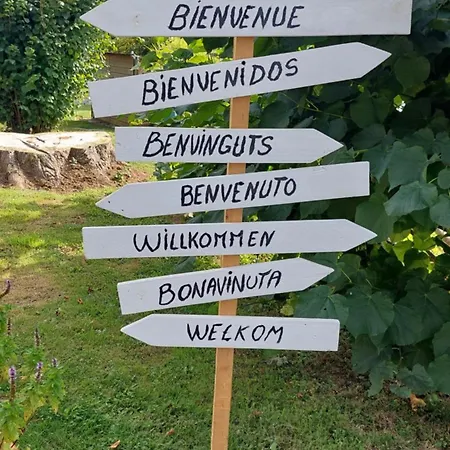 BIENVENUE
BIENVENIDOS
BENVINGUTS
BENVENUTO
WILLKOMMEN
BONAVINUTA
WELKOM